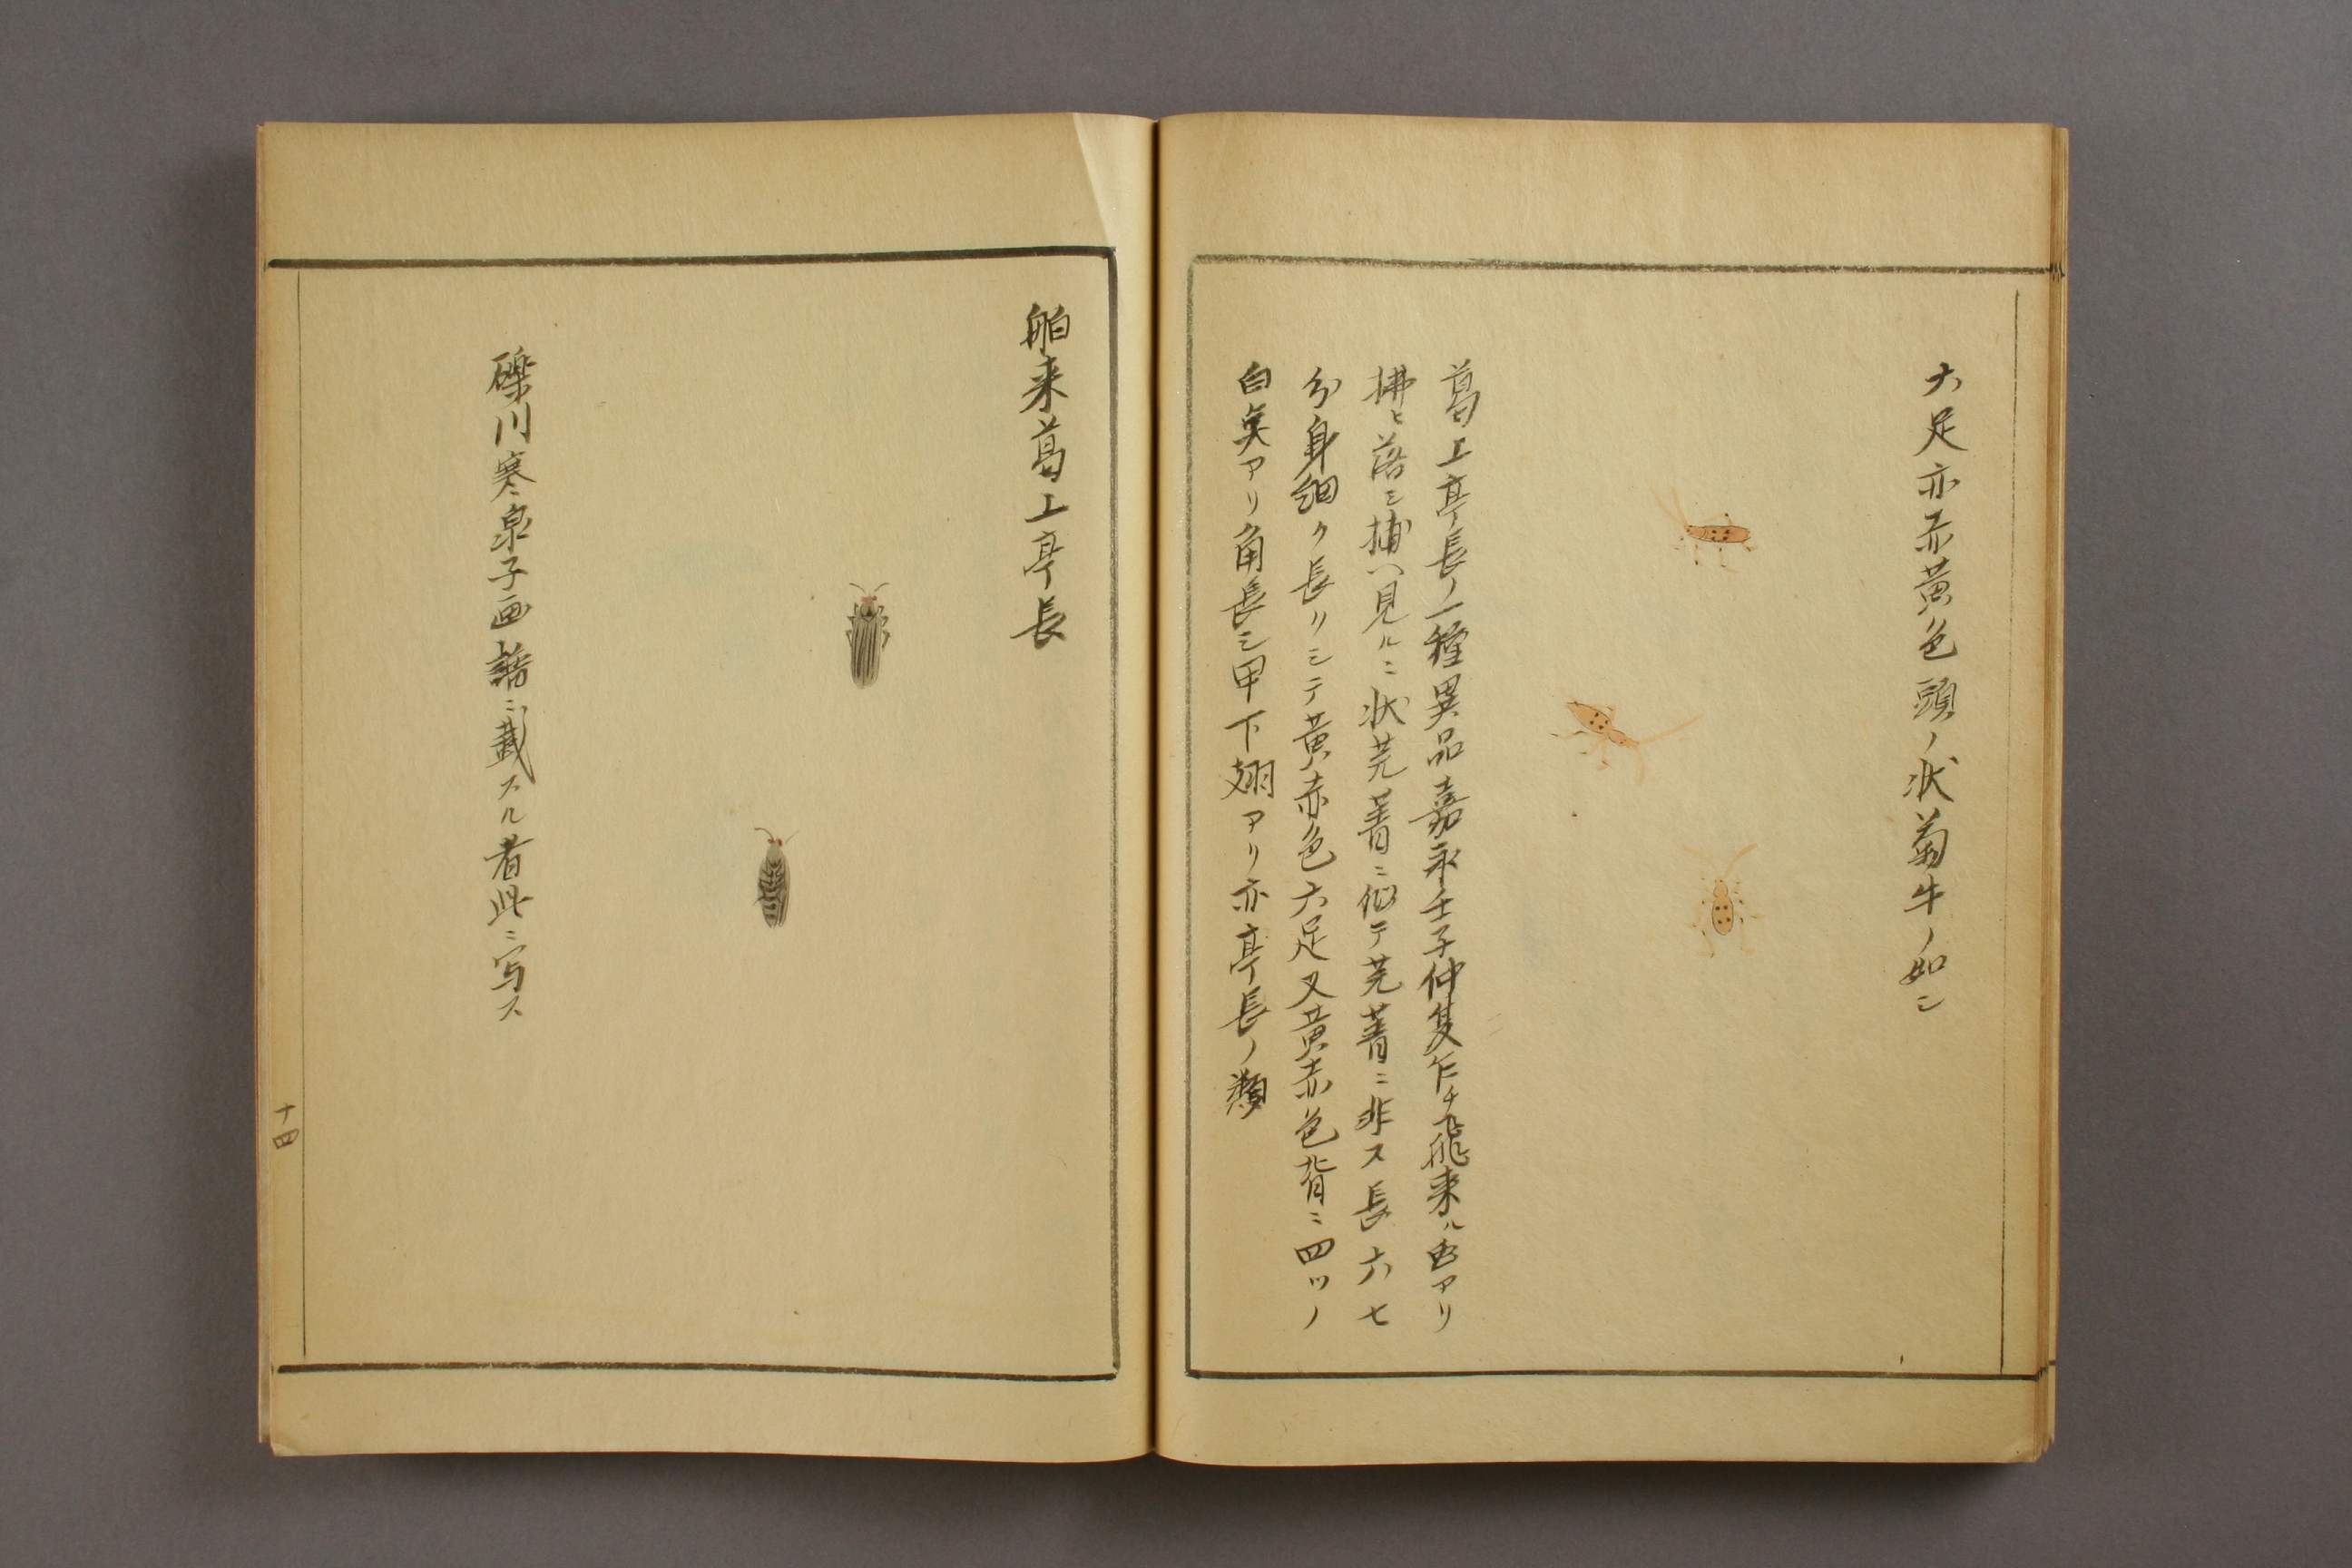 六足亦赤黄色頭ノ状菊牛ノ如シ
葛上亭長ノ一種異品嘉永壬子仲夏乍チ飛来ル虫アリ
拂ヒ落シ捕ヘ見ルニ状芫菁ニ似テ芫菁ニ非ス長六七
分身細ク長リシテ黄赤色六足又黄赤色背ニ四ツノ
白点アリ角長シ甲下翅アリ亦亭長ノ類
舶来葛上亭長
礫川寒泉子画譜ニ載スル者此ニ写ス
十四